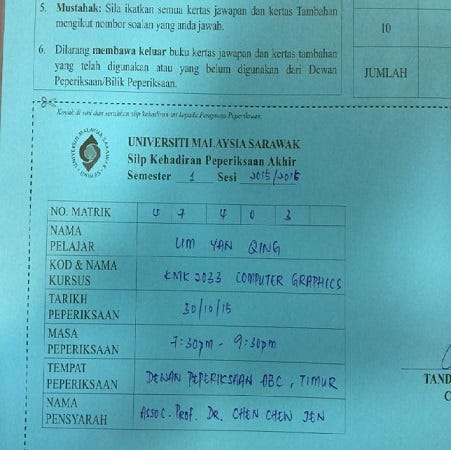 5. Mustahak: Sila ikatkan semua kertas jawapan dan kertas Tambahan
mengikut nombor soalan yang anda jawab.
10
6. Dilarang membawa keluar buku kertas jawapan dan kertas tambahan
yang telah digunakan atau yang belum digunakan dari Dewan
Peperiksaan/Bilik Peperiksaan.
JUMLAH
Koyak di sini dan serahkan slip kehadiran ini kepada Pengawas Peperiksaan.
UNIVERSITI MALAYSIA SARAWAK
UNIMAS
UNIVERSITI MALAYSIA SARAWAK
Slip Kehadiran Peperiksaan Akhir
Semester 1 Sesi 2015/2016
NO. MATRIK 4 7 4 0 3
NAMA
PELAJAR LIM YAN QING
KOD & NAMA
KURSUS KMK 2033 COMPUTER GRAPHICS
TARIKH
PEPERIKSAAN 30/10/15
MASA
PEPERIKSAAN 7:30pm - 9:30pm
TEMPAT
PEPERIKSAAN DEWAN PEPERIKSAAN ABC, TIMUR
NAMA
PENSYARAH ASSOC. PROF. DR. CHEN CHEW JEN
TAND
C